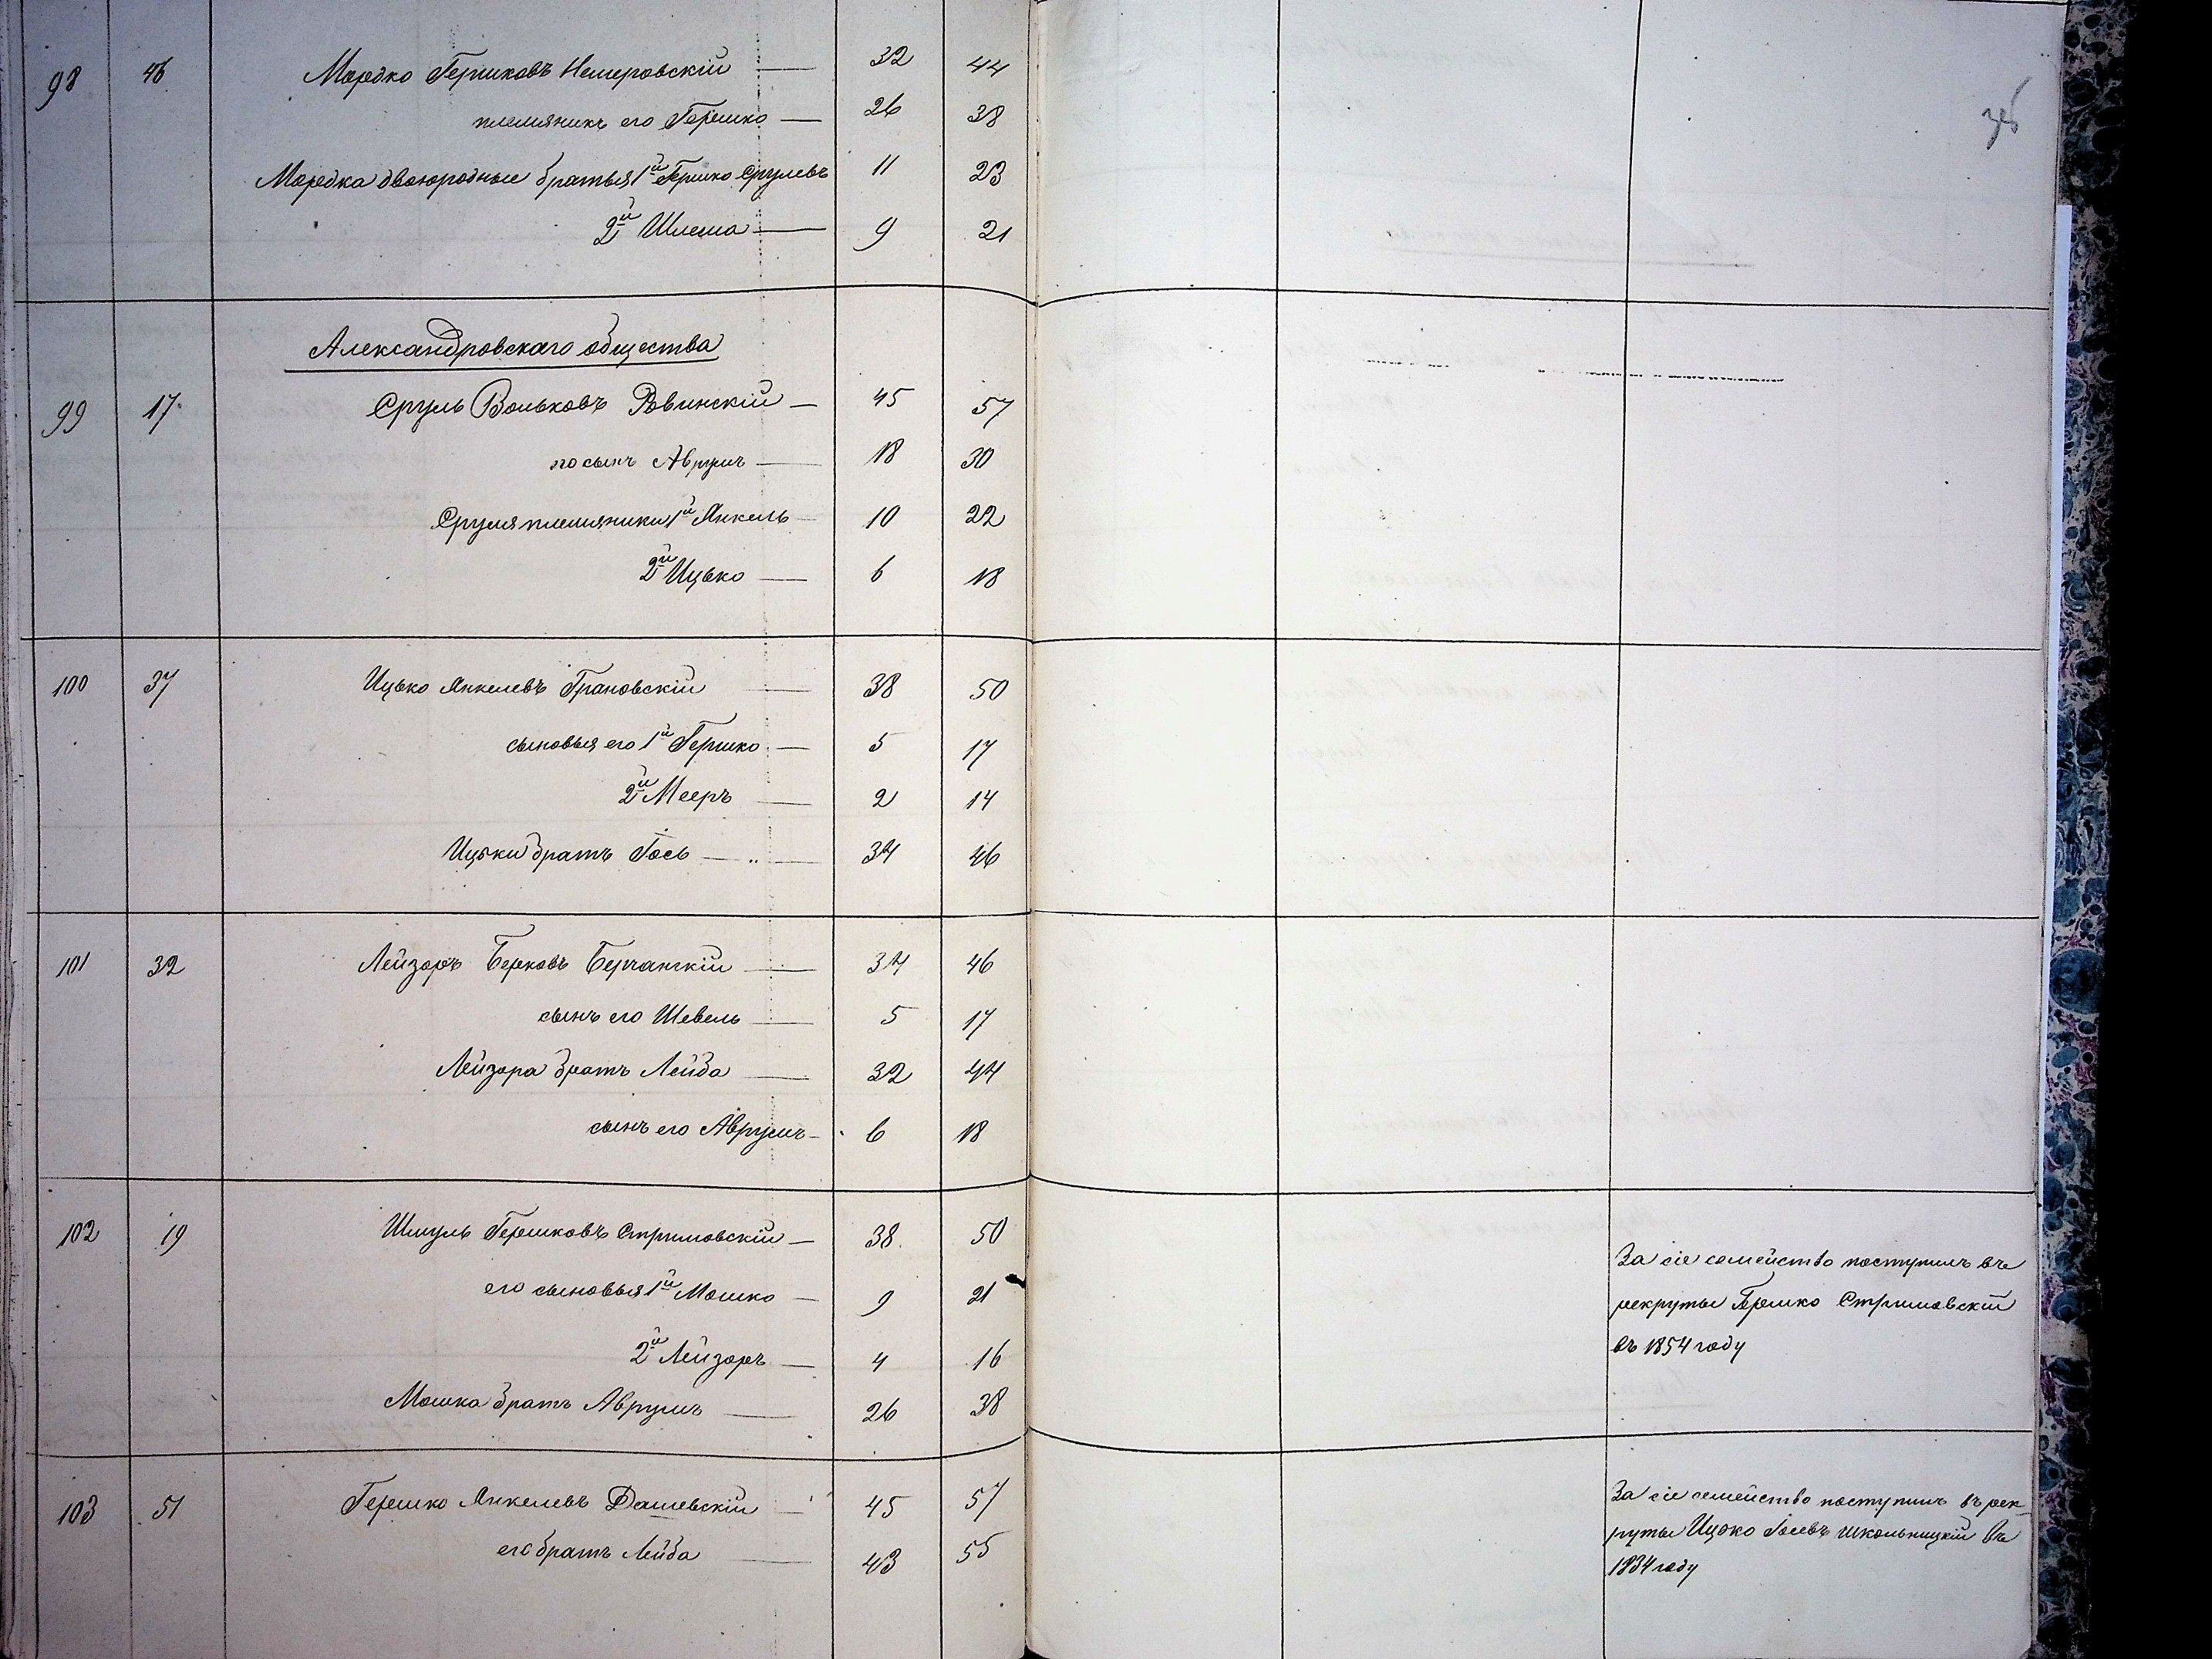 38
98 46 Мордко Гершковъ Немеровскій — 32 44
племянникъ его Гершко — 26 38
Мордка двоюродные братья 1й Гершко Срулевъ 11 23
2й Шлема — 9 21
Александровскаго общества
99 17 Сруль Вольковъ Ровинскій — 45 57
его сынъ Аврумъ — 18 30
Сруля племяники 1й Янкель 10 22
2й Ицько — 6 18
100 37 Ицько Янкелевъ Грановскій — 38 50
сыновья его 1й Гершко — 5 17
2й Мееръ — 2 14
Ицьки братъ Гось — „ — 34 46
101 32 Лейзоръ Берковъ Берчанскій — 34 46
сынъ его Шевель — 5 17
Лейзора братъ Лейба — 32 44
сынъ его Аврумъ — 6 18
102 19 Шмуль Гершковъ Стримовскій — 38 50
его сыновья 1й Мошко — 9 21
2й Лейзоръ — 4 16
Мошка братъ Аврумъ — 26 38
За сіе семейство поступилъ въ
рекруты Гершко Стримовскій
въ 1854 году
103 51 Гершко Янкелевъ Дашевскій — 45 57
его братъ Лейба — 43 55
За сіе семейство поступилъ въ рек-
руты Ицько Іосевъ Школьницкій въ
1834 году